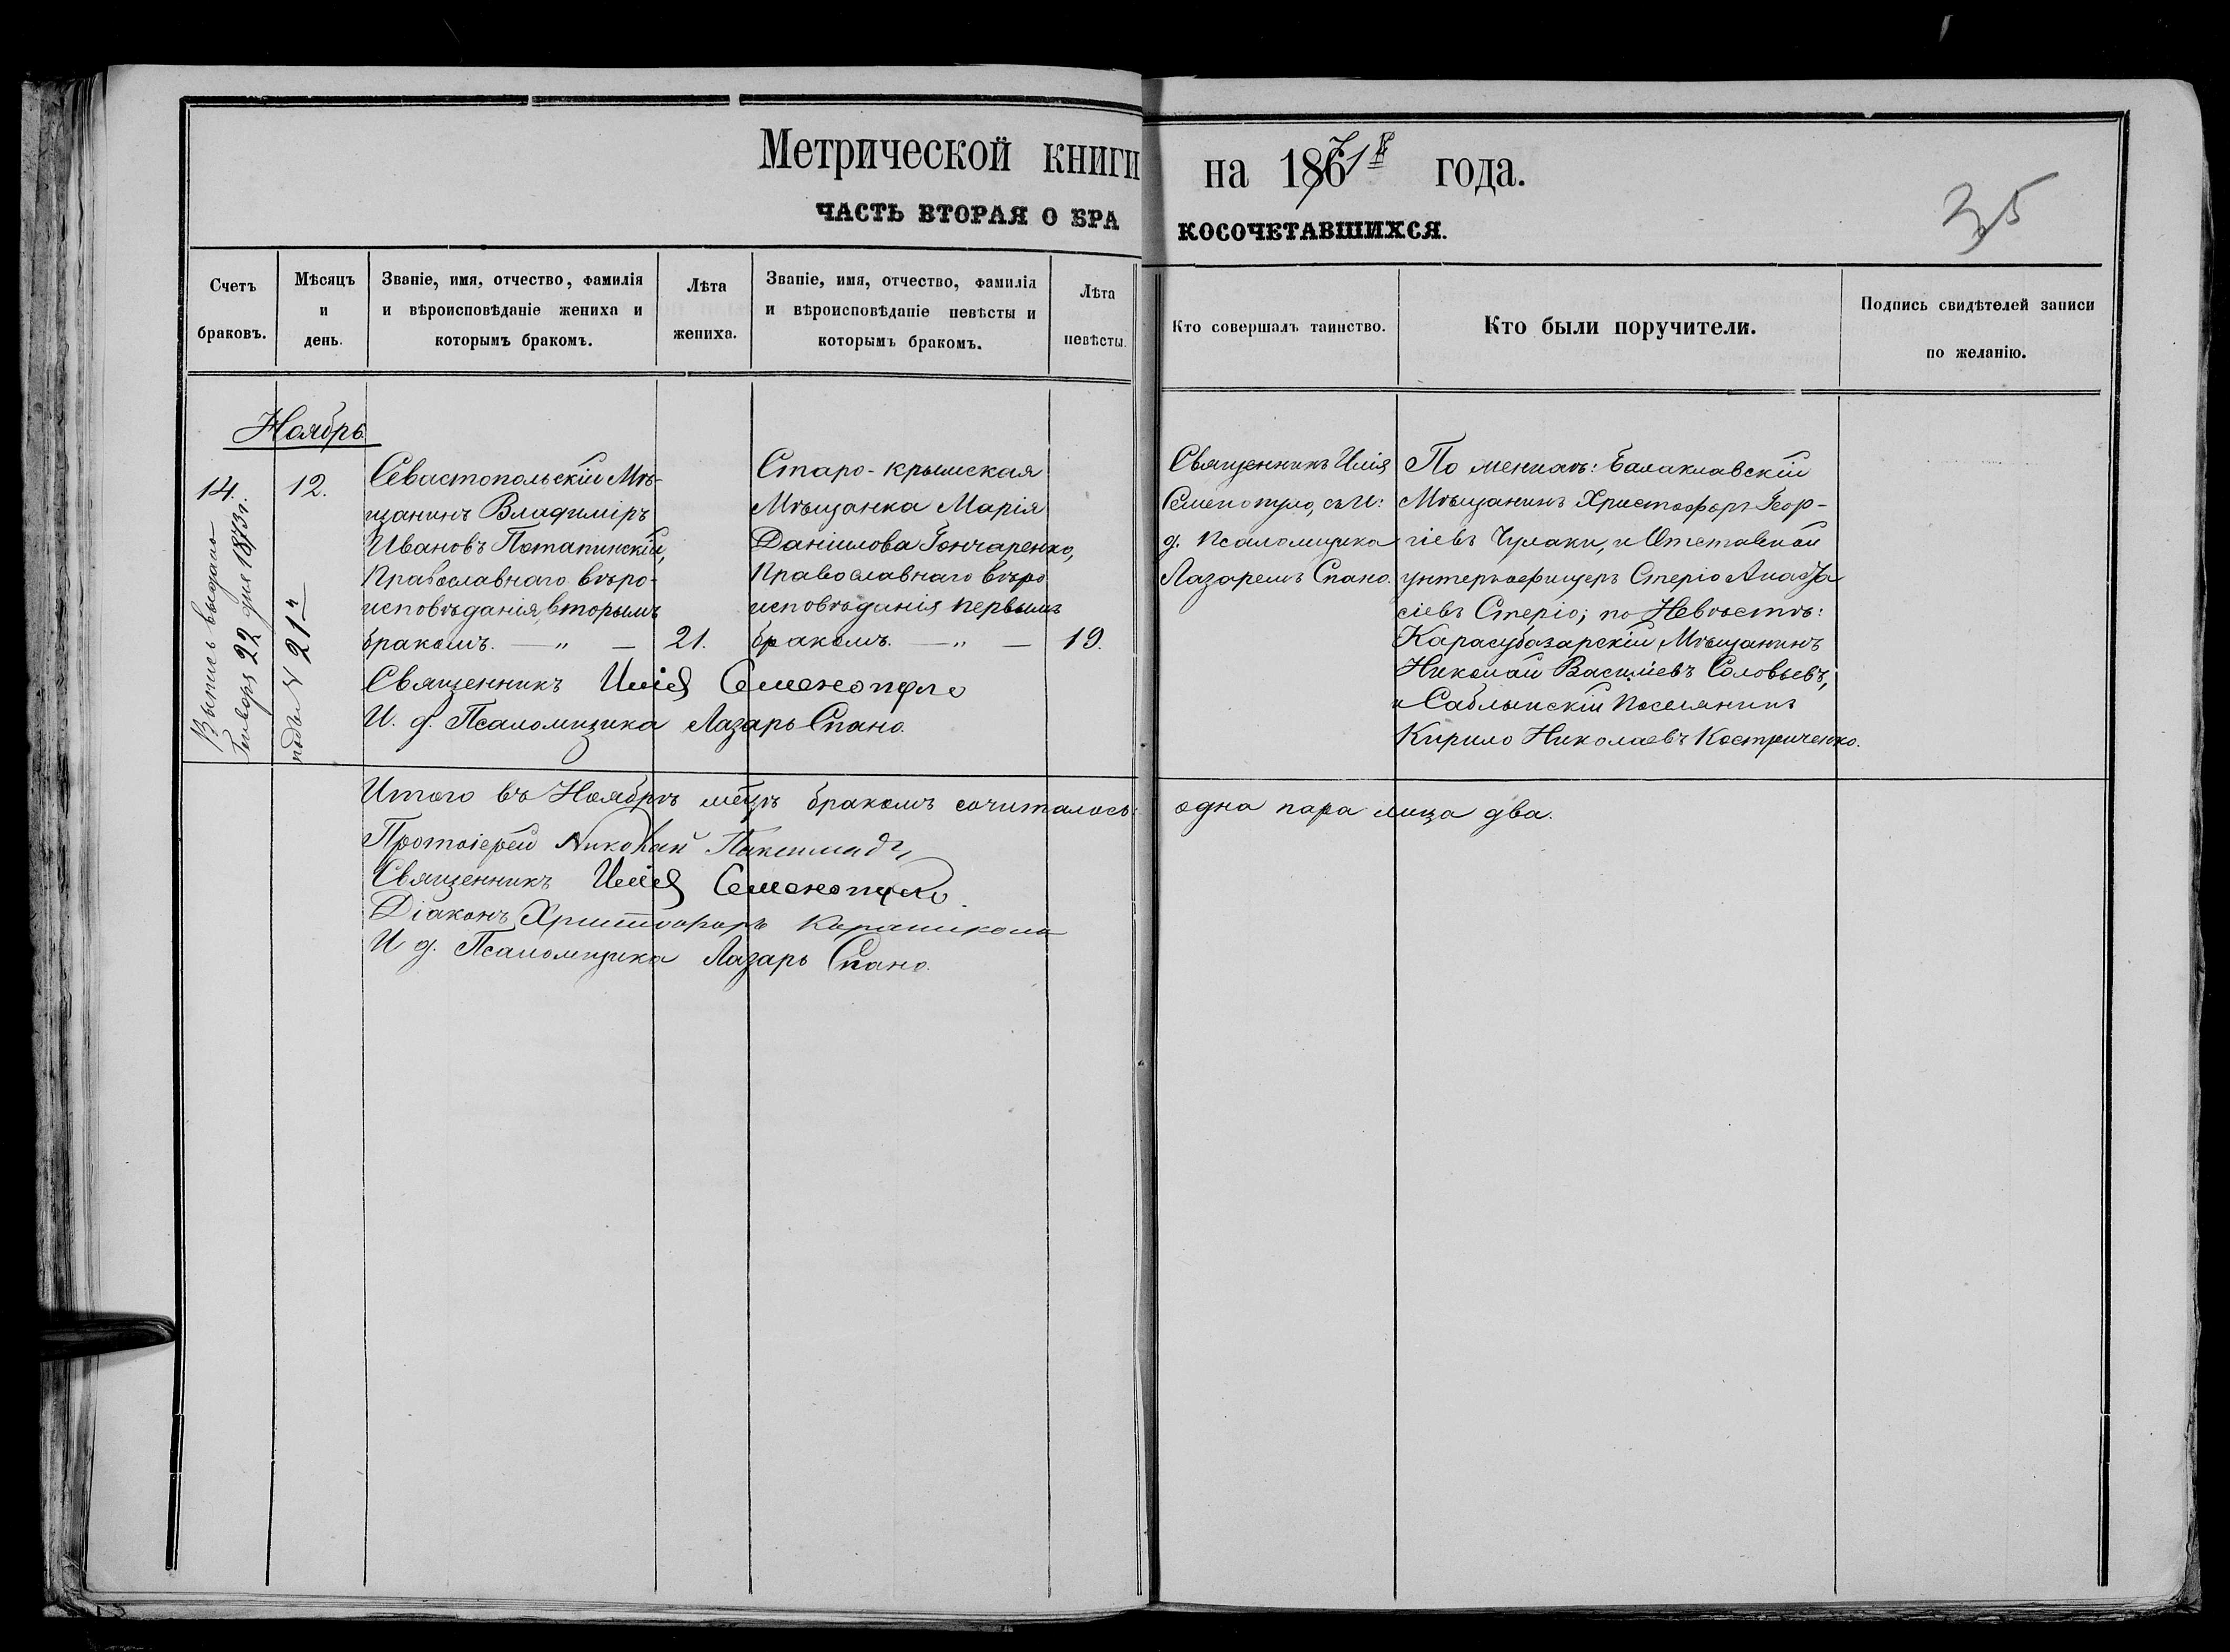 Метрической книги на 1871 года.
35
ЧАСТЬ ВТОРАЯ О БРАКОСОЧЕТАВШИХСЯ.
Счетъ браковъ.
Мѣсяцъ и день.
Званіе, имя, отчество, фамилія
и вѣроисповѣданіе жениха и
которымъ бракомъ.
Лѣта жениха.
Званіе, имя, отчество, фамилія
и вѣроисповѣданіе невѣсты и
которымъ бракомъ.
Лѣта невѣсты.
Кто совершалъ таинство.
Кто были поручители.
Подпись свидѣтелей записи
по желанію.
Ноябрь
14.
12.
Выпись выдана
Генваря 22 дня 1873 г.
подъ N 21
Севастопольскій Мѣ-
щанинъ Владиміръ
Ивановъ Потапинскій,
Православнаго вѣро-
исповѣданія, вторымъ
бракомъ. — „ —
21.
Старо-крымская
Мѣщанка Марія
Даніилова Гончаренко,
Православнаго вѣро
исповѣданія первымъ
бракомъ. — „ —
19.
Священникъ Илія
Семенопуло, съ И:
д. Псаломщика
Лазаремъ Спано.
По женихѣ: Балаклавскій
Мѣщанинъ Христофоръ Геор-
гіевъ Чулаки, и Отставной
унтеръ-офицеръ Стеріо Анаста
сіевъ Стеріо; по Невѣстѣ:
Карасубазарскій Мѣщанинъ
Николай Василіевъ Соловьевъ,
и Саблынскій поселянинъ
Кирило Николаевъ Костриченко.
Священникъ Илія Семенопуло
И. д. Псаломщика Лазарь Спано.
Итого въ Ноябрѣ мѣцѣ бракомъ сочиталось: одна пара лица два.
Протоіерей Николай
Священникъ Илія Семенопуло.
Діаконъ Христофоръ
И д. Псаломщика Лазарь Спано.